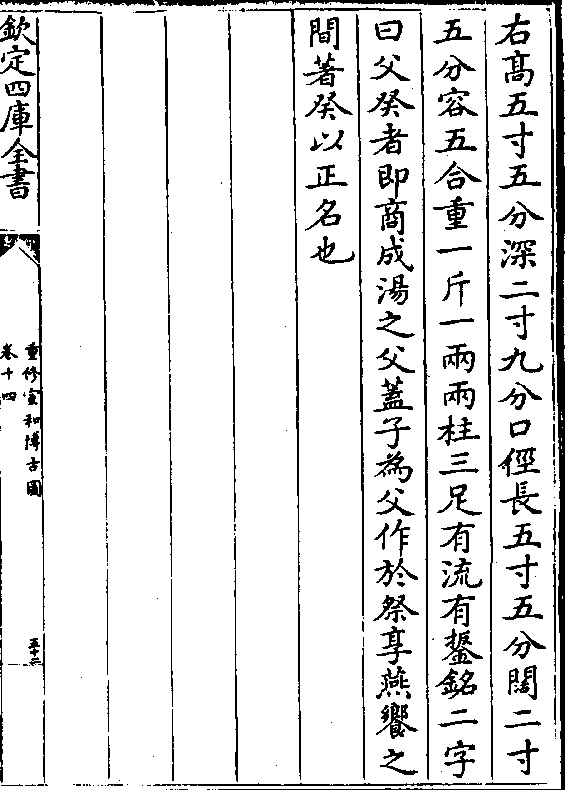 右髙五寸五分深二寸九分口徑長五寸五分闊二寸
五分容五合重一斤一兩兩柱三足有流有鋬銘二字
曰父癸者即商成湯之父蓋子為父作於祭享燕饗之
間著癸以正名也
欽定四庫全書
重修宣和博古圖
卷十四